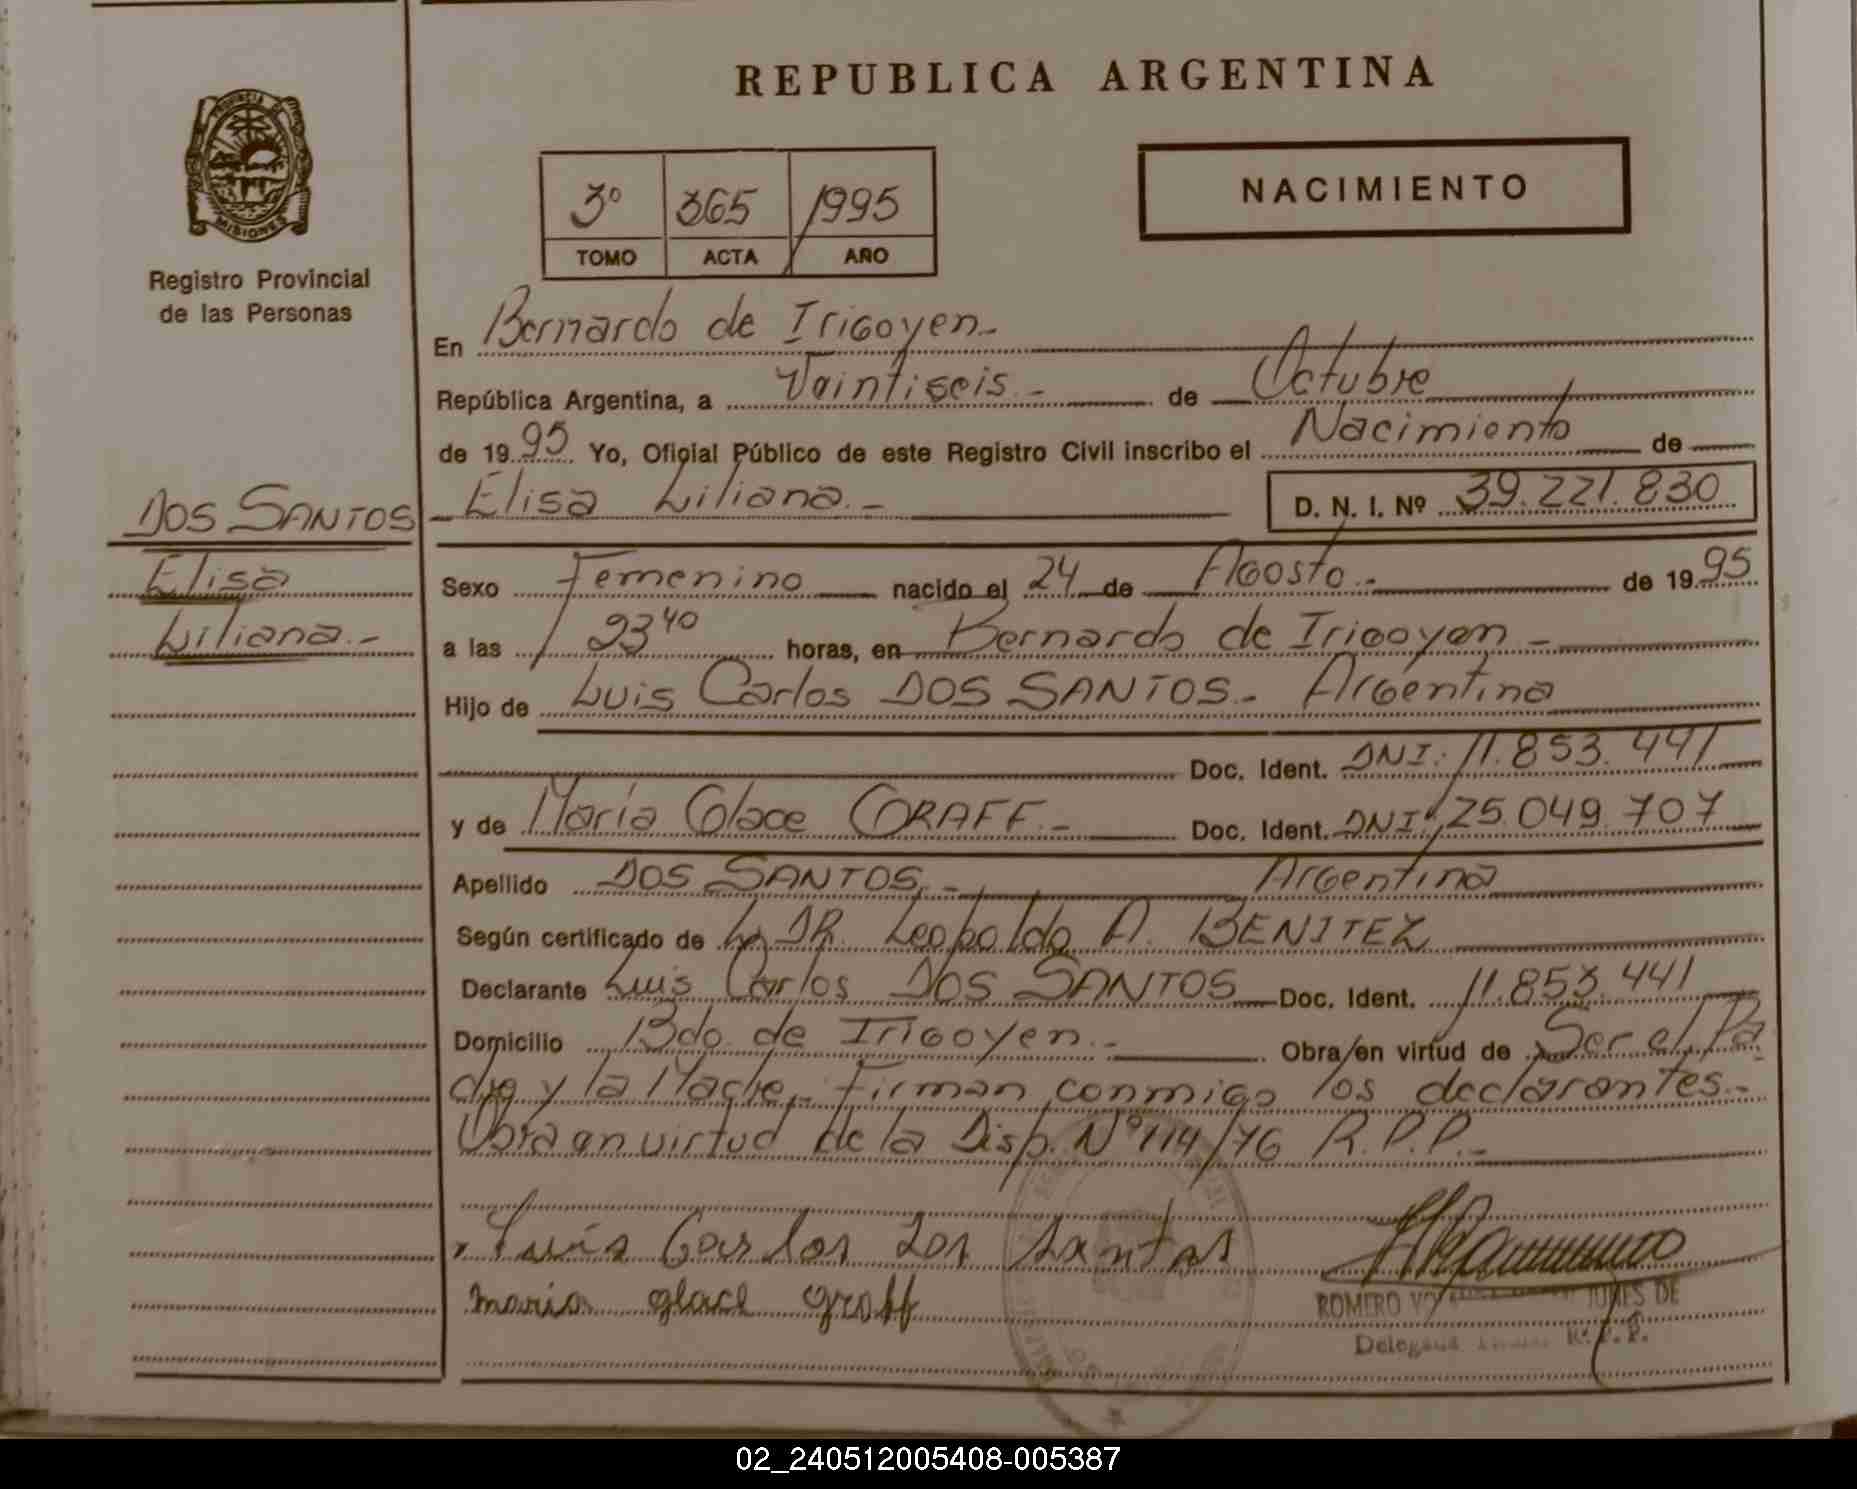 REPUBLICA ARGENTINA
PROVINCIA DE
MISIONES
Registro Provincial
de las Personas
3º 365 1995
TOMO ACTA AÑO
NACIMIENTO
En Bernardo de Irigoyen.-
República Argentina, a Veintiseis.- de Octubre
de 1995 Yo, Oficial Público de este Registro Civil inscribo el Nacimiento de
DOS SANTOS
Elisa
Liliana.-
Elisa Liliana.- D. N. I. Nº 39.221.830
Sexo Femenino nacido el 24 de Agosto.- de 1995
a las 23⁴⁰ horas, en Bernardo de Irigoyen.-
Hijo de Luis Carlos DOS SANTOS.- Argentina
Doc. Ident. DNI. 11.853.441
y de María Glace GRAFF.- Doc. Ident. DNI. 25.049.707
Apellido DOS SANTOS.- Argentina
Según certificado de DR. Leopoldo A. BENITEZ
Declarante Luis Carlos DOS SANTOS Doc. Ident. 11.853.441
Domicilio Bdo. de Irigoyen.- Obra/en virtud de Ser el Pa
dre y la Madre.- Firman conmigo los declarantes.-
Obra en virtud de la Disp. Nº 114/76 R.P.P.-
Luis Carlos Dos Santos
maria glace graff
ROMERO DE
R.P.P.
02_240512005408-005387